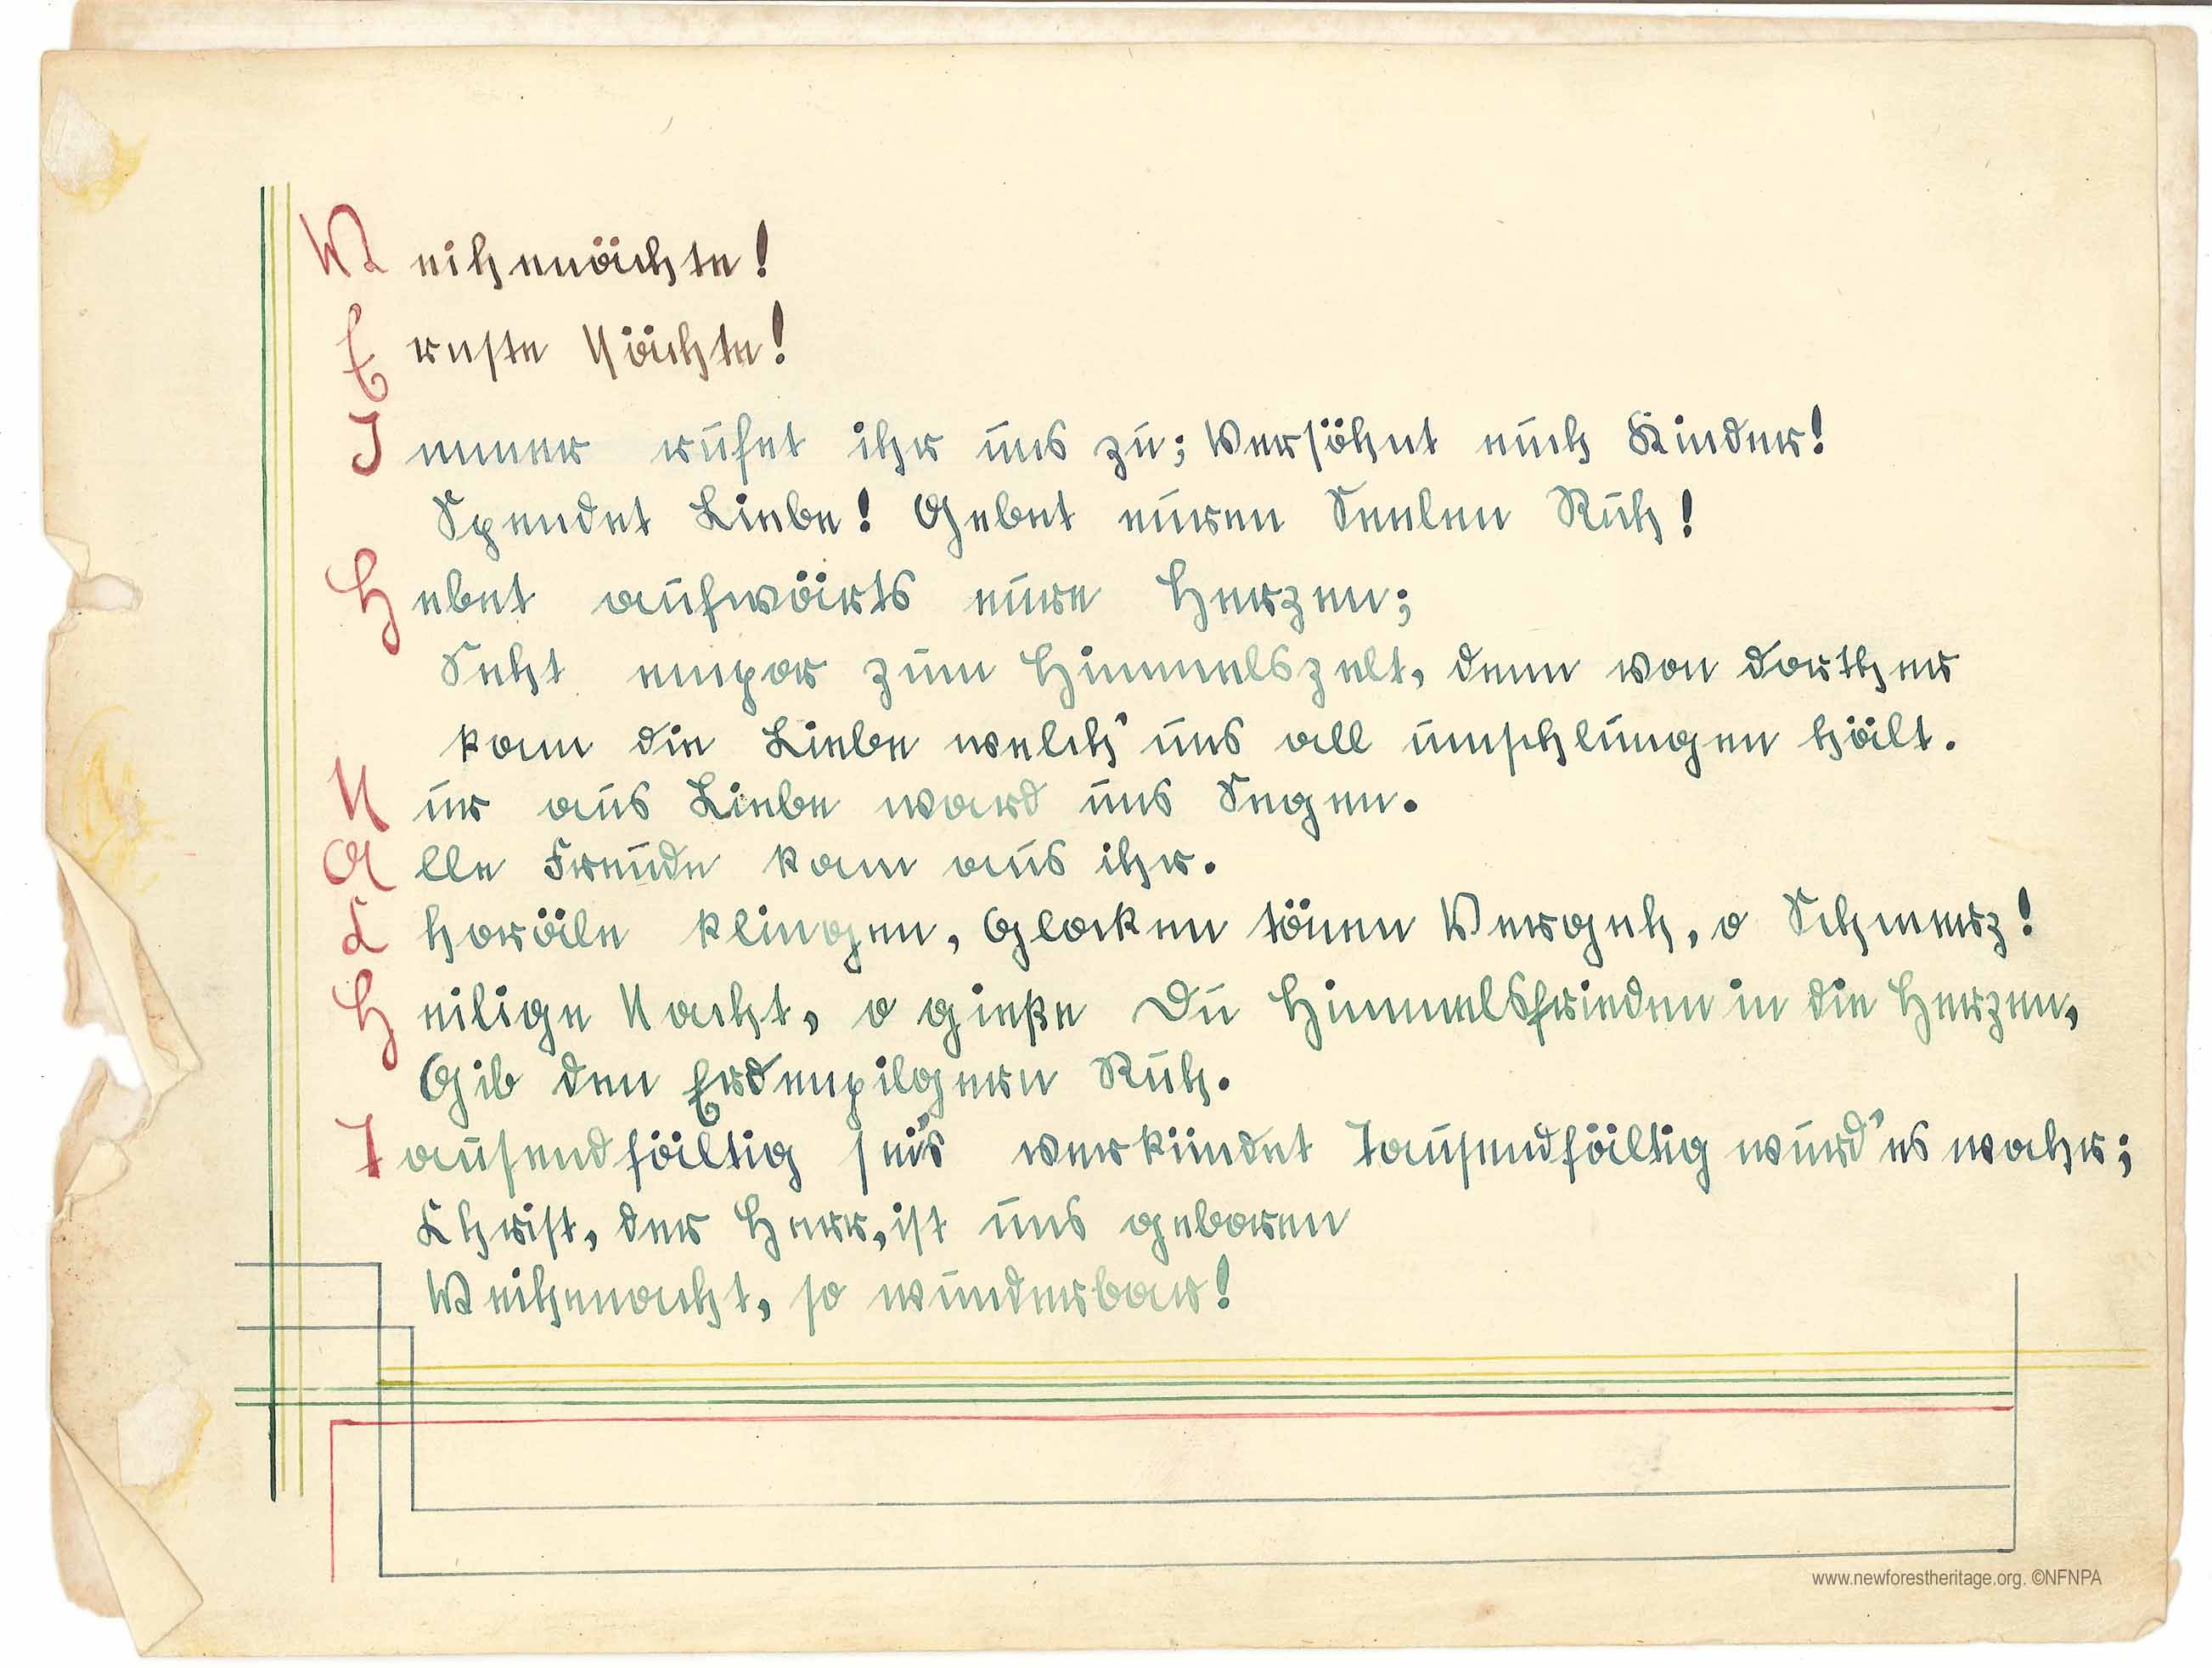 Weihenächte!
Ernste Nächte!
Immer rufet ihr uns zu; Versöhnt euch Kinder!
Spendet Liebe! Gebet euren Seelen Ruh!
Hebet aufwärts eure Herzen;
Seht empor zum Himmelszelt, denn von dorther
kam die Liebe welch' uns all umschlungen hält.
Nur aus Liebe ward uns Segen.
Alle Freude kam aus ihr.
Choräle klingen, Glocken tönen Vergeh, o Schmerz!
Heilige Nacht, o gieße Du Himmelsfrieden in die Herzen,
Gib den Erdenpilgern Ruh.
Tausendfältig sei's verkündet Tausendfältig wurd' es wahr;
Christ, der Herr, ist uns geboren
Weihenacht, so wunderbar!
www.newforestheritage.org. ©NFNPA